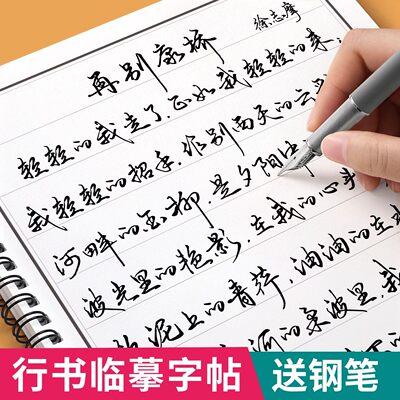 再别康桥
徐志摩
轻轻的我走了,正如我轻轻的来,
我轻轻的招手,作别西天的云
河畔的金柳,是夕阳中
波光里的艳影,在我的心头
泥上的青荇,油油的在
的柔波里,
行书临摹字帖 送钢笔